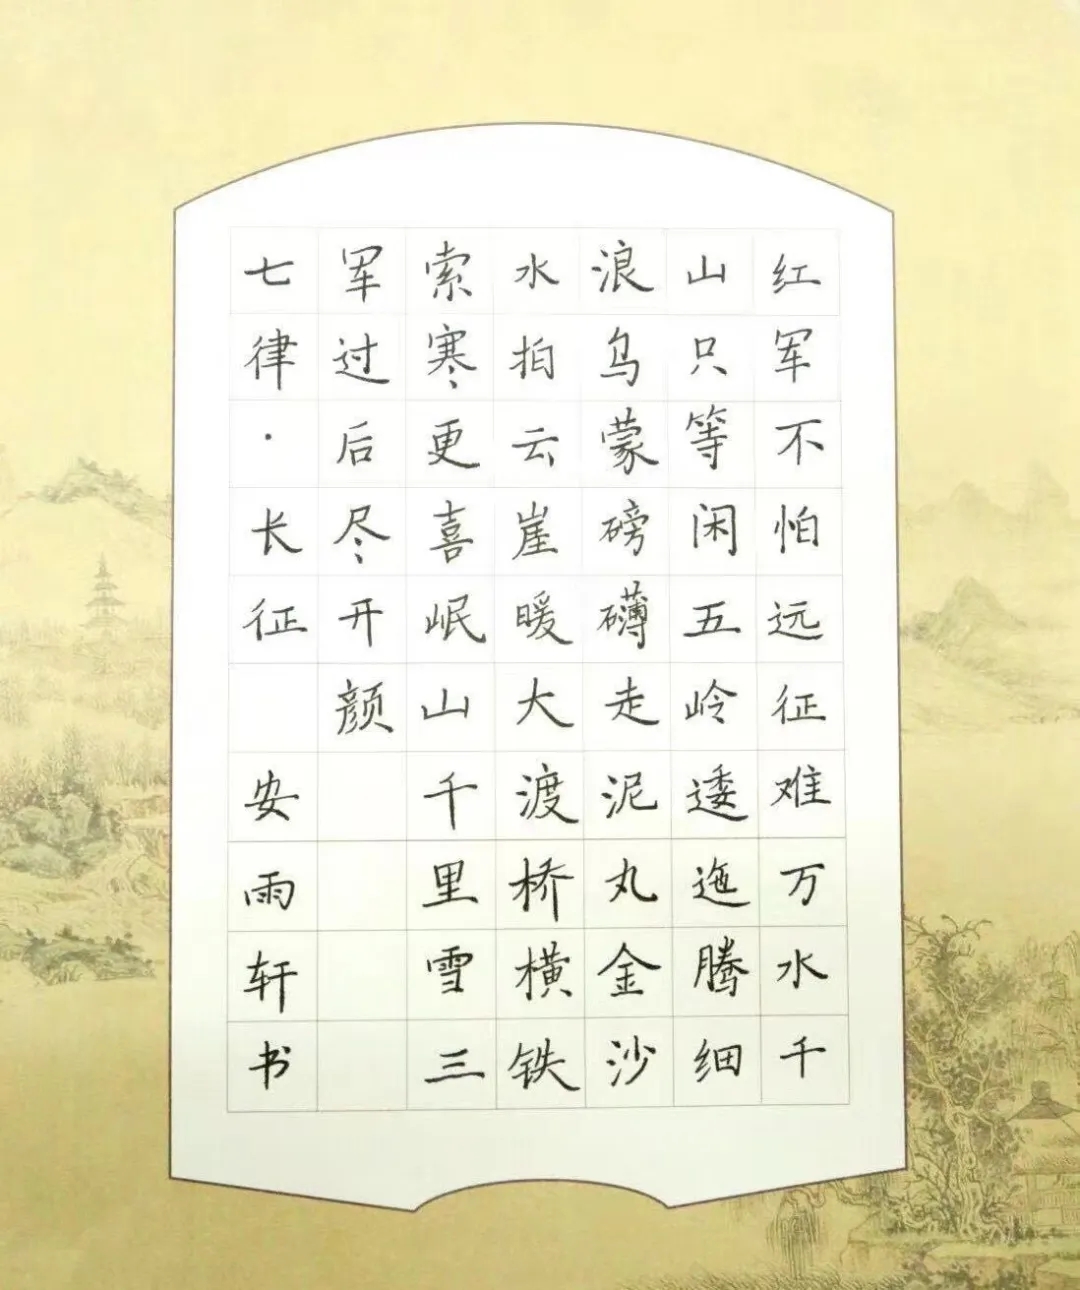 红军不怕远征难万水千
山只等闲五岭逶迤腾细
浪乌蒙磅礴走泥丸金沙
水拍云崖暖大渡桥横铁
索寒更喜岷山千里雪三
军过后尽开颜
七律·长征 安雨轩书